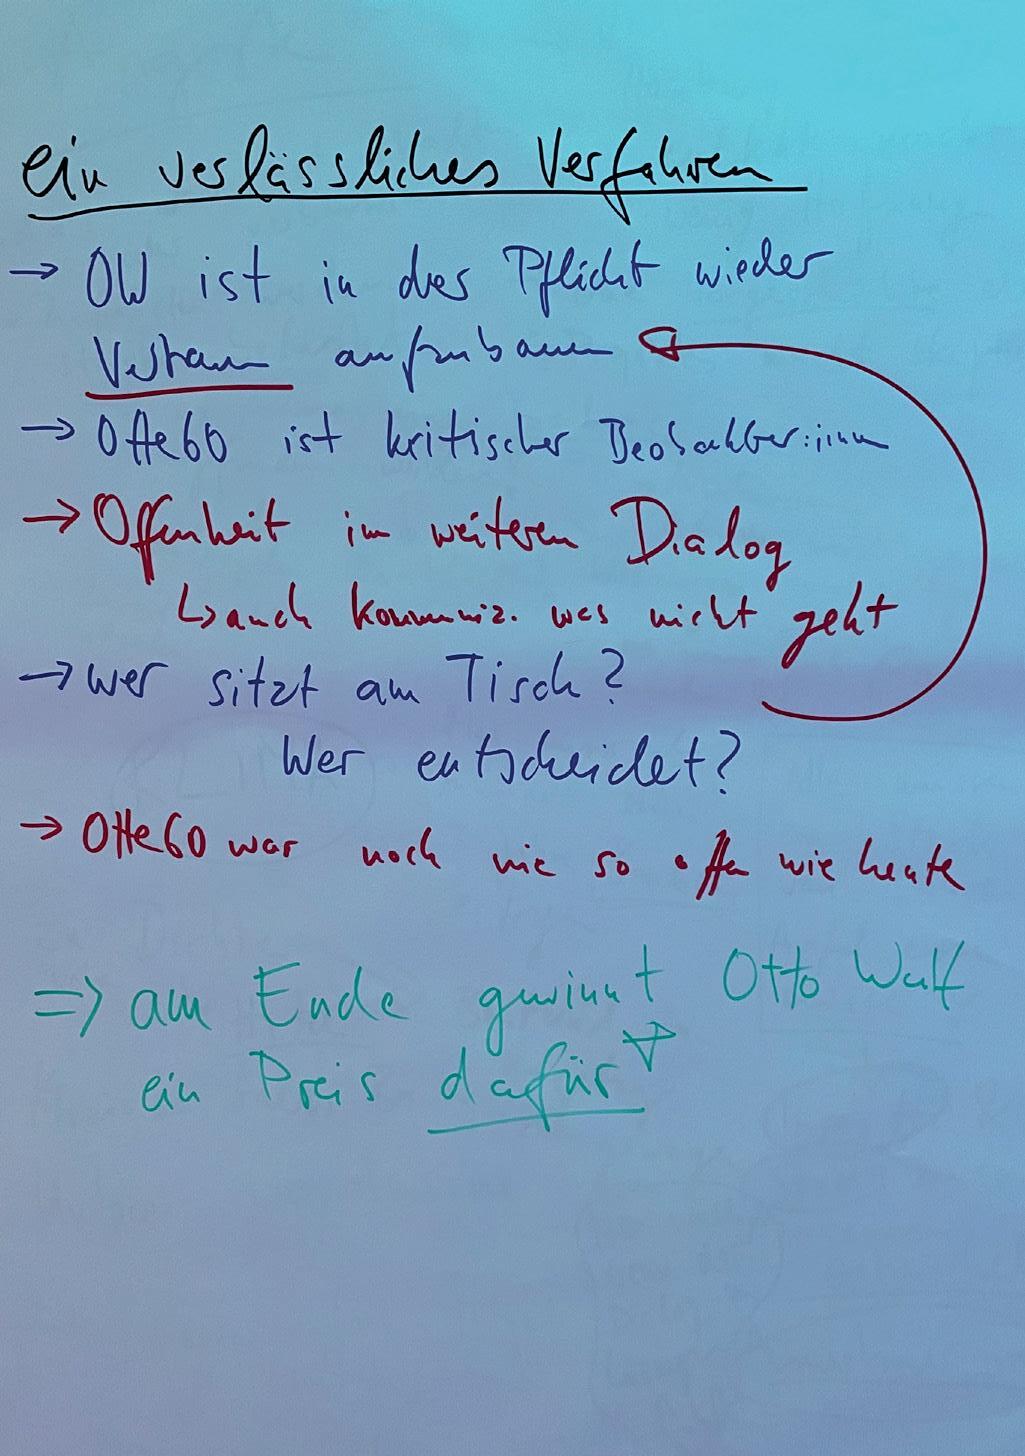 ein verlässliches Verfahren
→ OW ist in der Pflicht wieder
Vertrauen aufzubauen
→ Otte60 ist kritischer Beobachter:inn
→ Offenheit im weiteren Dialog
↳ auch kommuniz. was nicht geht
→ wer sitzt am Tisch?
Wer entscheidet?
→ Otte60 war noch nie so offen wie heute
=> am Ende gewinnt Otto Wulf
ein Preis dafür